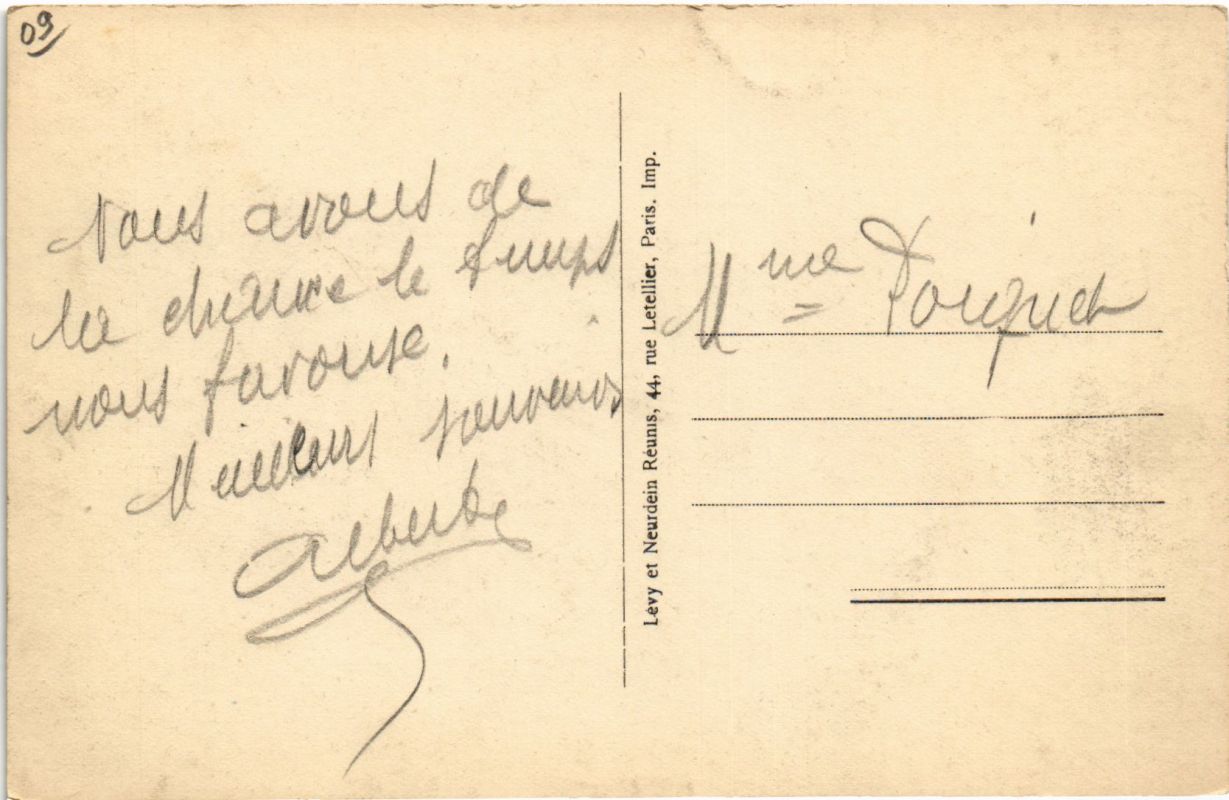 09
Nous avons de
la chance le temps
nous favorise.
Meilleurs souvenirs
Alberte
Lévy et Neurdein Réunis, 44, rue Letellier, Paris. Imp.
Mme